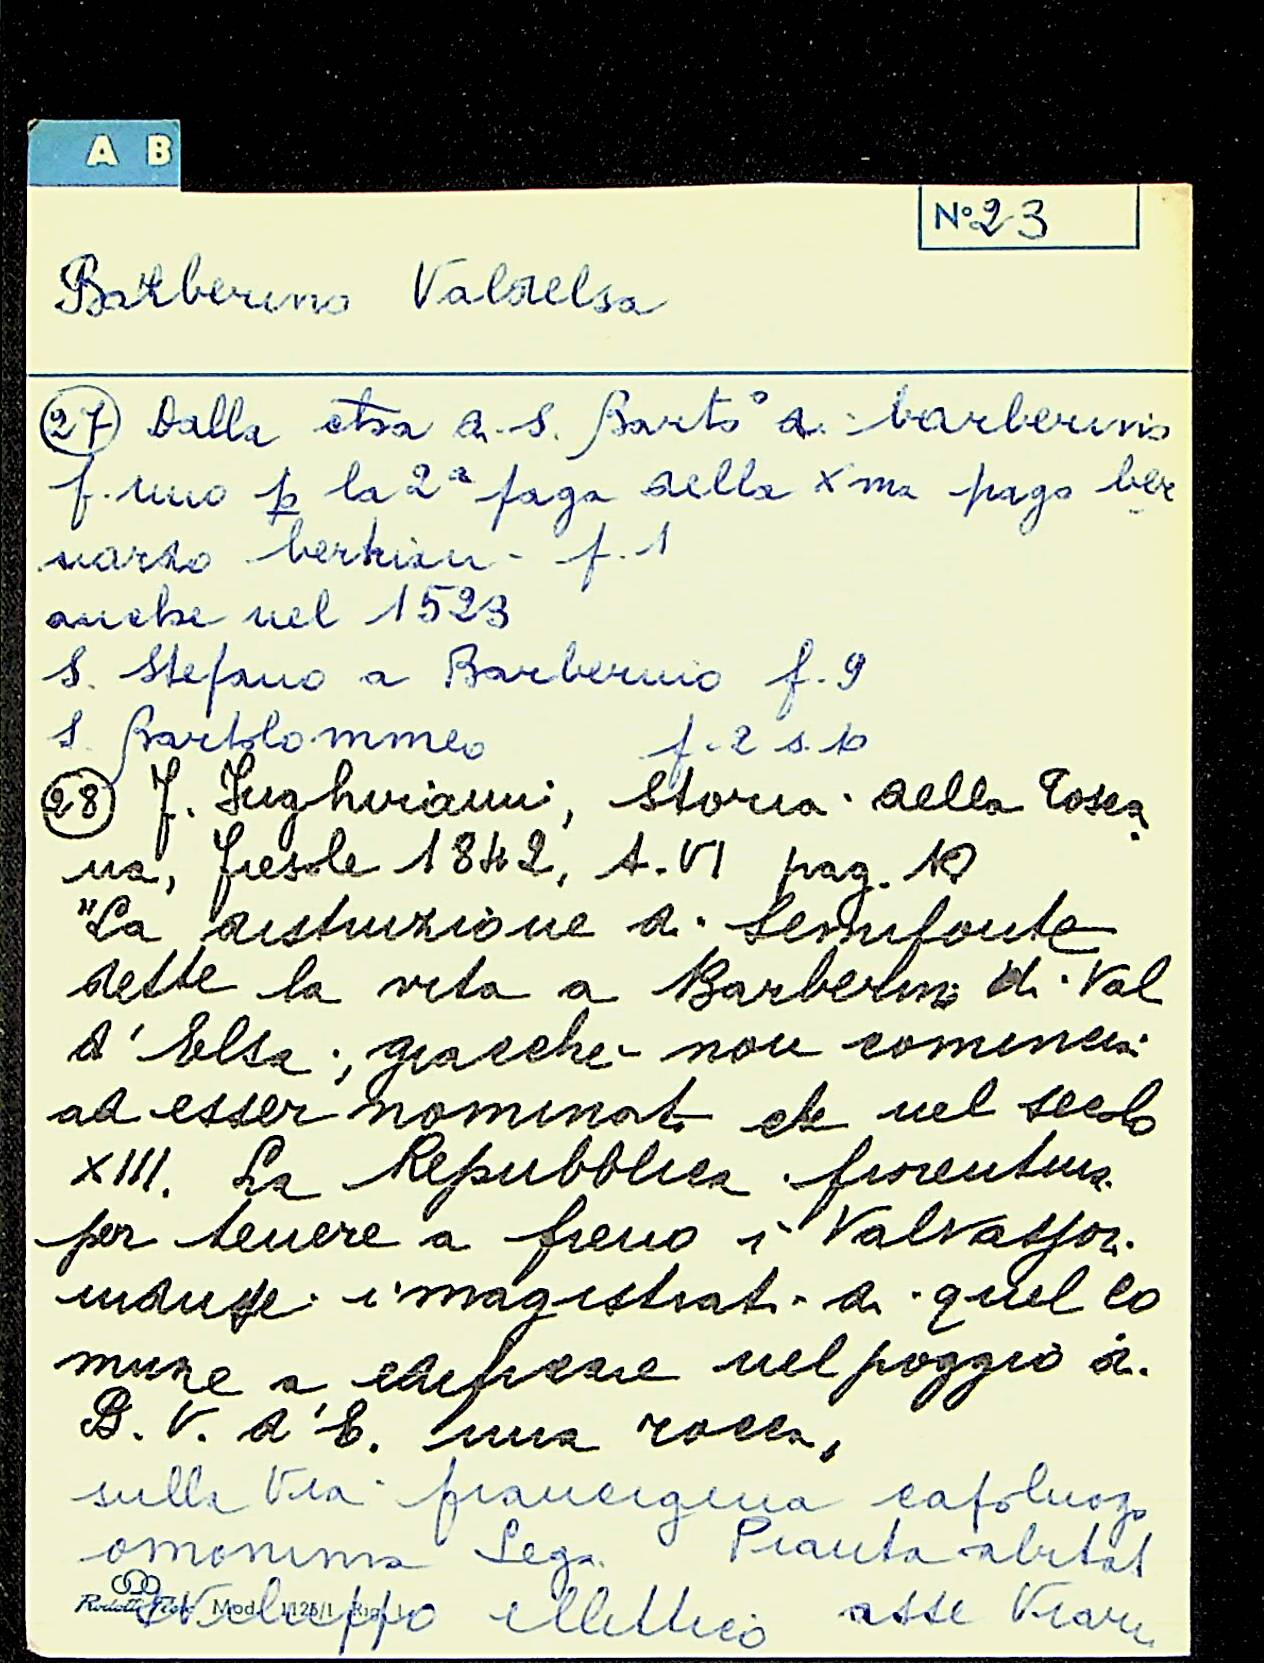 A B
N° 23
Barberino Valdelsa
27 Dalla chsa di S. Barto° a barberino
f. uno p la 2ª paga della Xma pago ber
nardo f. 1
anche nel 1523
S. Stefano a Barberino f. 9
S. Bartolommeo f. 2 s. 10
28 F. Inghirami, Storia della Tosca
na, Fiesole 1842, t. VI pag. 10
"La distruzione di Semifonte
dette la vita a Barberino di Val
d'Elsa; giacché non cominciò
ad esser nominato che nel secolo
XIII. La Repubblica fiorentina
per tenere a freno i Valvassori
indusse i magistrati di quel co
mune a edificare nel poggio di
B. V. d'E. una rocca,
sulla Via francigena capoluogo
omonima Lega. Pianta abitat
sviluppo ellittico asse Viario
Mod. 1125/1